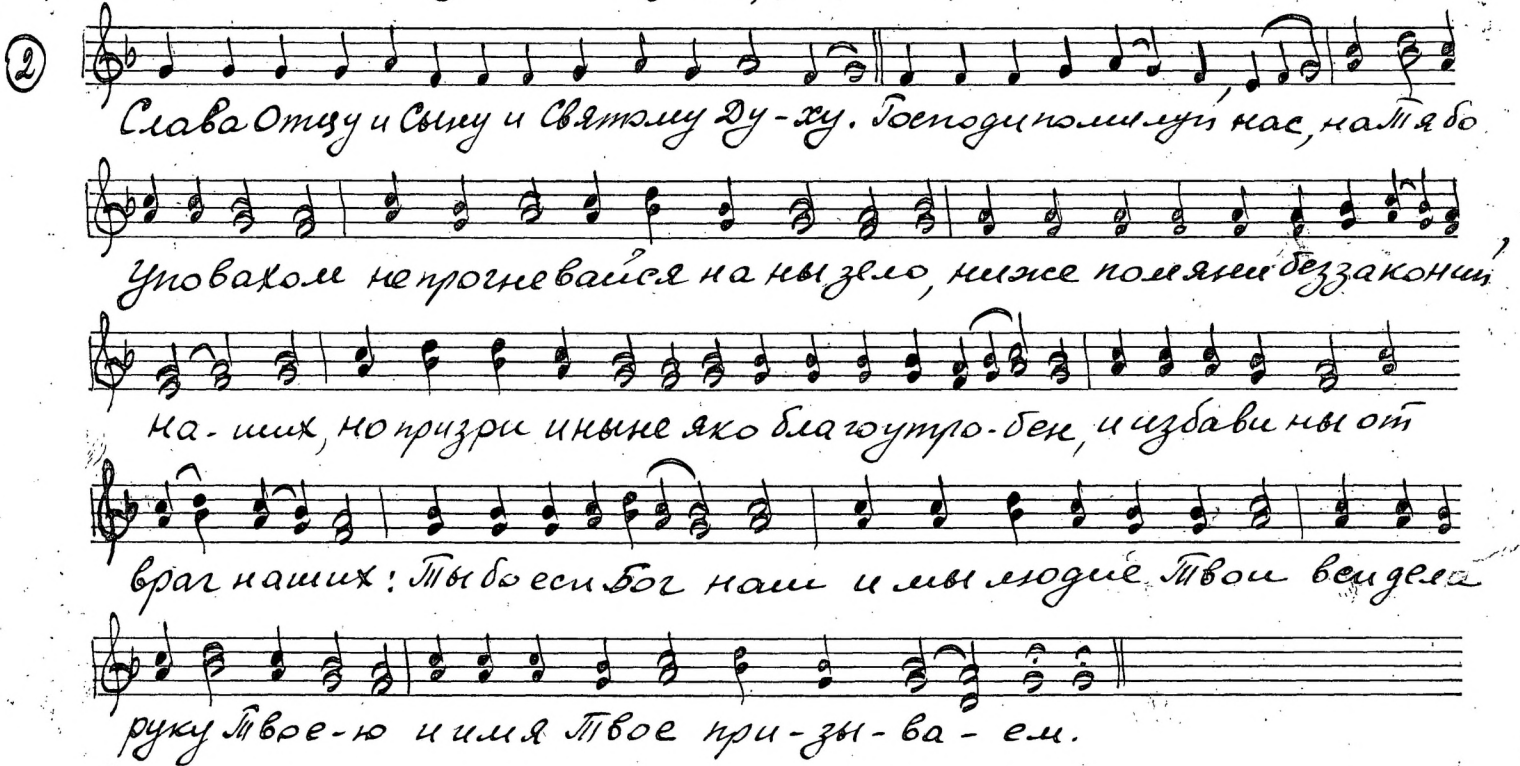 2
Слава Отцу и Сыну и Святому Ду-ху. Господи помилуй нас, на Тя бо
уповахом не прогневайся на ны зело, ниже помяни беззаконий
на-ших, но призри и ныне яко благоутро-бен, и избави ны от
враг наших: Ты бо еси Бог наш и мы людие Твои вси дела
руку Твое-ю и имя Твое при-зы-ва-ем.